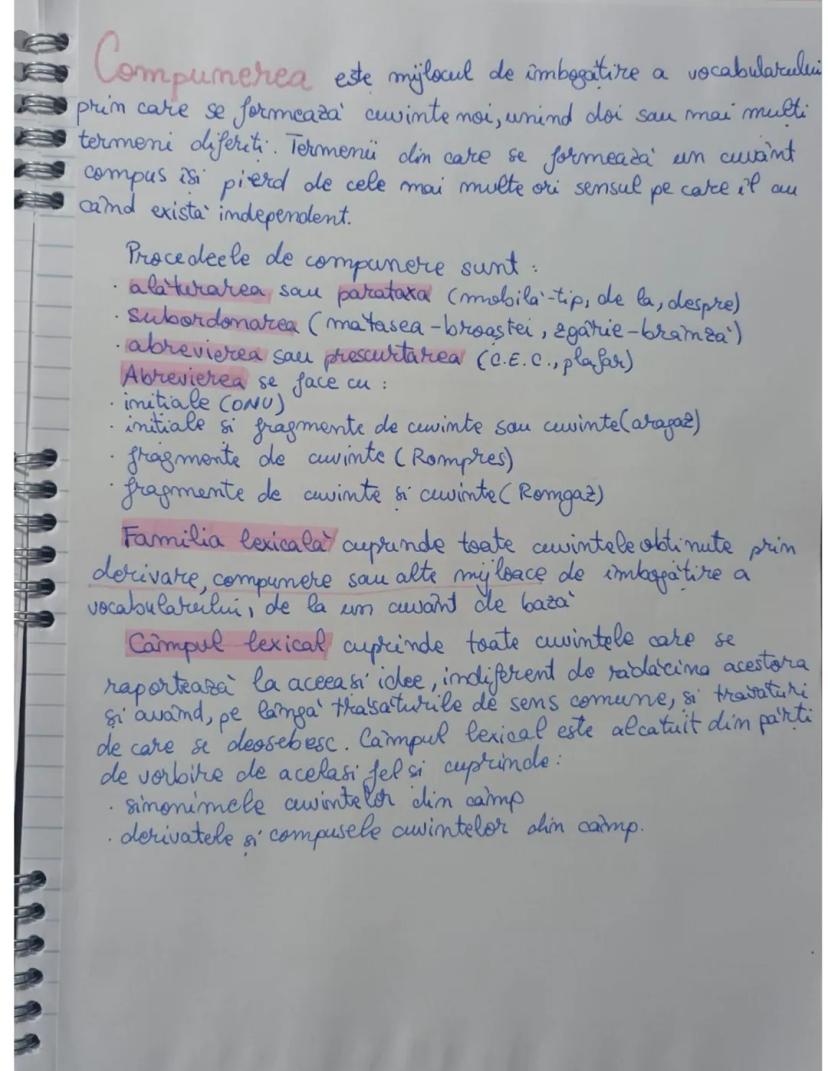 Compunerea este mijlocul de îmbogățire a vocabularului
prin care se formează cuvinte noi, unind doi sau mai mulți
termeni diferiți. Termenii din care se formează un cuvânt
compus își pierd de cele mai multe ori sensul pe care îl au
când există independent.
Procedeele de compunere sunt :
· alăturarea sau parataxa (mobilă-tip, de la, despre)
· subordonarea (mătasea-broaștei, zgârie-brânză)
· abrevierea sau prescurtarea (C.E.C., plafar)
Abrevierea se face cu :
· inițiale (ONU)
· inițiale și fragmente de cuvinte sau cuvinte (aragaz)
· fragmente de cuvinte (Rompres)
· fragmente de cuvinte și cuvinte (Romgaz)
Familia lexicală cuprinde toate cuvintele obținute prin
derivare, compunere sau alte mijloace de îmbogățire a
vocabularului, de la un cuvânt de bază
Câmpul lexical cuprinde toate cuvintele care se
raportează la aceeași idee, indiferent de rădăcina acestora
și având, pe lângă trăsăturile de sens comune, și trăsături
de care se deosebesc. Câmpul lexical este alcătuit din părți
de vorbire de același fel și cuprinde :
· sinonimele cuvintelor din câmp
· derivatele și compusele cuvintelor din câmp.